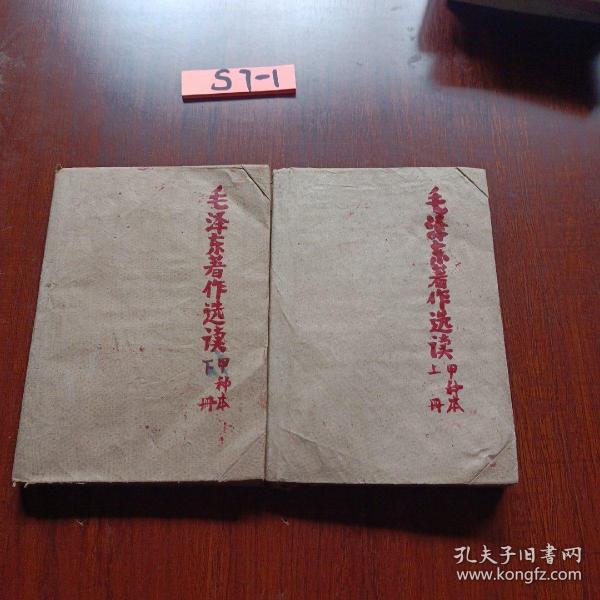 S7-1
毛泽东著作选读
甲种本
下册
毛泽东著作选读
甲种本
上册
孔夫子旧书网
www.kongfz.com